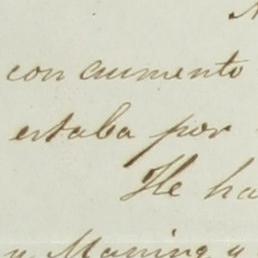 con aumento
estaba por
He ha
y Manina y